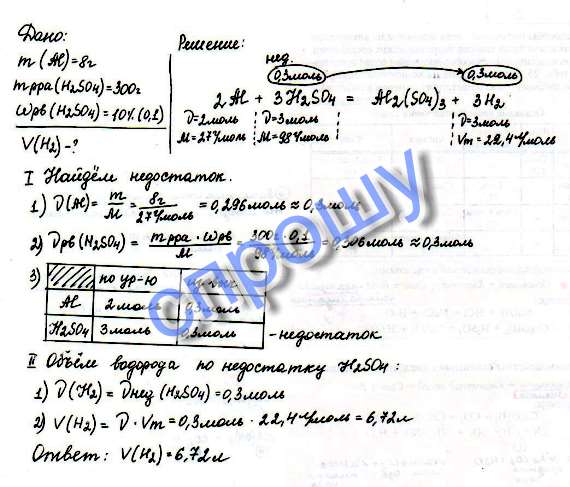 Дано:
m (Al) = 8г
mр-ра (H2SO4) = 300г
ωрв (H2SO4) = 10% (0,1)
V(H2) - ?
Решение:
нед.
0,3моль 0,3моль
2Al + 3H2SO4 = Al2(SO4)3 + 3H2
ν=2моль ν=3моль ν=3моль
M=27г/моль M=98г/моль Vm=22,4л/моль
I Найдём недостаток.
1) ν(Al) = m/M = 8г/27г/моль = 0,296моль ≈ 0,3моль
2) νрв (H2SO4) = mр-ра · ωрв/M = 300г · 0,1/98г/моль = 0,306моль ≈ 0,3моль
3) по ур-ю
Al 2моль 0,3моль
H2SO4 3моль 0,3моль - недостаток
II Объём водорода по недостатку H2SO4:
1) ν(H2) = νнед (H2SO4) = 0,3моль
2) V(H2) = ν · Vm = 0,3моль · 22,4л/моль = 6,72л
Ответ: V(H2) = 6,72л
спрошу